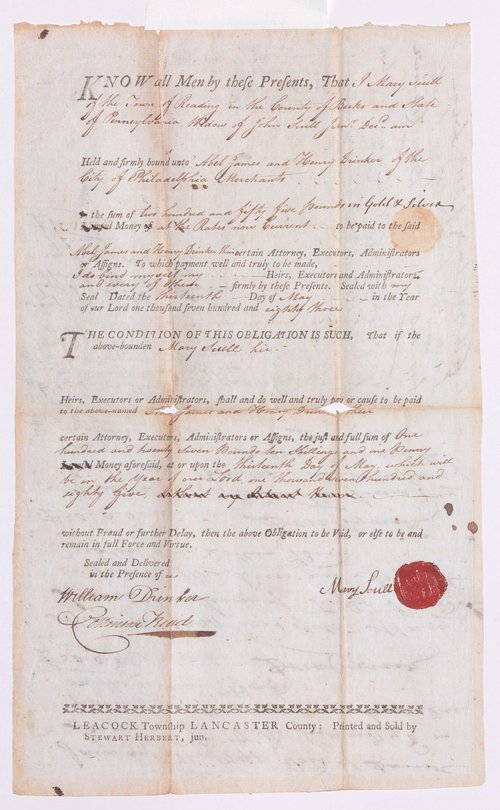 KNOW all Men by these Presents, That I Mary Scull
of the Town of Reading in the County of Berks and State
of Pennsylvania Widow of John Scull Junr. Decd. am
Held and firmly bound unto Abel James and Henry Drinker of the
City of Philadelphia Merchants
in the sum of two hundred and fifty five Pounds in Gold & Silver
Money at the Rates now Current to be paid to the said
Abel James and Henry Drinker their certain Attorney, Executors, Administrators
or Assigns. To which payment well and truly to be made,
I do bind myself my Heirs, Executors and Administrators,
and every of them firmly by these Presents. Sealed with my
Seal Dated the thirteenth Day of May in the Year
of our Lord one thousand seven hundred and eighty three
THE CONDITION OF THIS OBLIGATION IS SUCH, That if the
above-bounden Mary Scull her
Heirs, Executors or Administrators, shall and do well and truly pay or cause to be paid
to the above-named James and Henry Drinker their
certain Attorney, Executors, Administrators or Assigns, the just and full sum of One
hundred and twenty seven Pounds ten Shillings and one Penny
Money aforesaid, at or upon the thirteenth Day of May, which will
be in the Year of our Lord one thousand seven hundred and
eighty five,
without Fraud or further Delay, then the above Obligation to be Void, or else to be and
remain in full Force and Virtue.
Sealed and Delivered
in the Presence of
William Drinker
Mary Scull
Read
LEACOCK Township LANCASTER County: Printed and Sold by
STEWART HERBERT, jun.